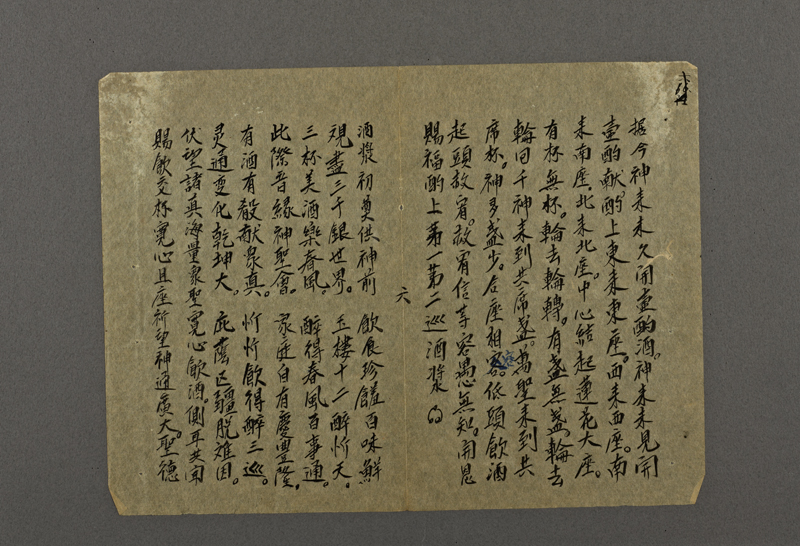 据今神来未久開壺酌酒。神来未見開
壺酌献。酌上東来東座。西来西座。南
来南座。北来北座。中心結起蓮花大座。
有杯無杯。輪去輪轉。有盞無盞輪去
輪回千神来到共席盞。萬聖来到共
席杯。神多盞少。合座相容。低頭飲酒
起頭赦宥。赦宥信等容愚無知。開恩
賜福酌上第一第二巡酒漿
六
酒漿初奠供神前 飲食珍饈百味鮮
視盡三千銀世界。玉樓十二醉忻天。
三杯美酒樂春風。醉得春風百事通。
此際吾緣神聖會。家庭自有慶豐隆。
有酒有殽献衆真。忻忻飲得醉三巡。
灵通变化乾坤大。庇蔭区疆脱难困。
伏望諸真海量衆聖寬心飲酒。側耳共聞
賜飲交杯寬心且座祈望神通廣大聖德